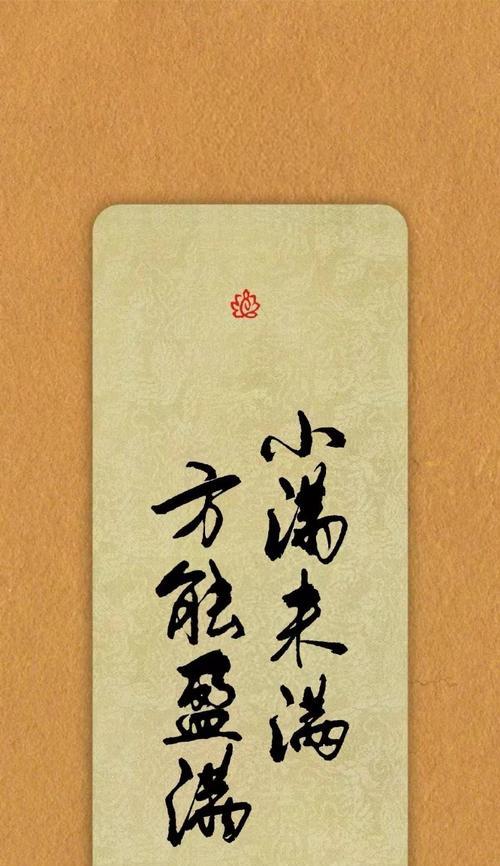 小满未满
方能盈满